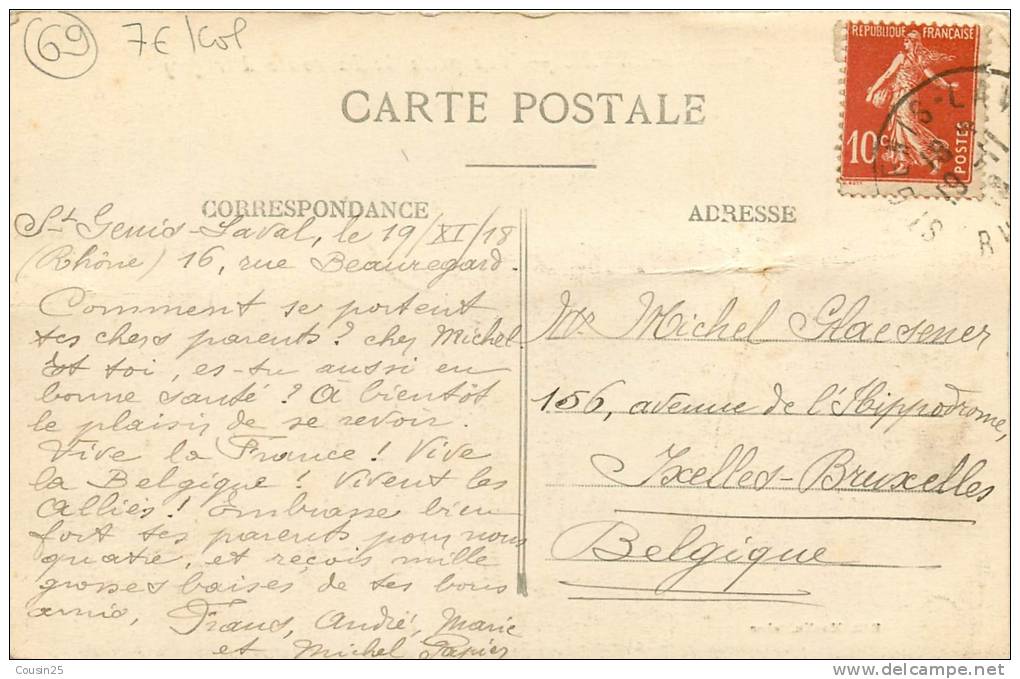 69
7€/col
RÉPUBLIQUE FRANÇAISE
10c
POSTES
CARTE POSTALE
CORRESPONDANCE
ADRESSE
St Genis-Laval, le 19/XI/18
(Rhône) 16, rue Beauregard.
Comment se portent
tes chers parents? cher Michel
Et toi, es-tu aussi en
bonne santé? À bientôt
le plaisir de se revoir.
Vive la France! Vive
la Belgique! Vivent les
Alliés! Embrasse bien
fort tes parents pour nous
quatre, et reçois mille
grosses baises de tes bons
amis, Frans, André, Marie
et Michel Papier
Mr Michel Glaesener
156, avenue de l'Hippodrome,
Ixelles-Bruxelles
Belgique
Cousin25
www.delcampe.net